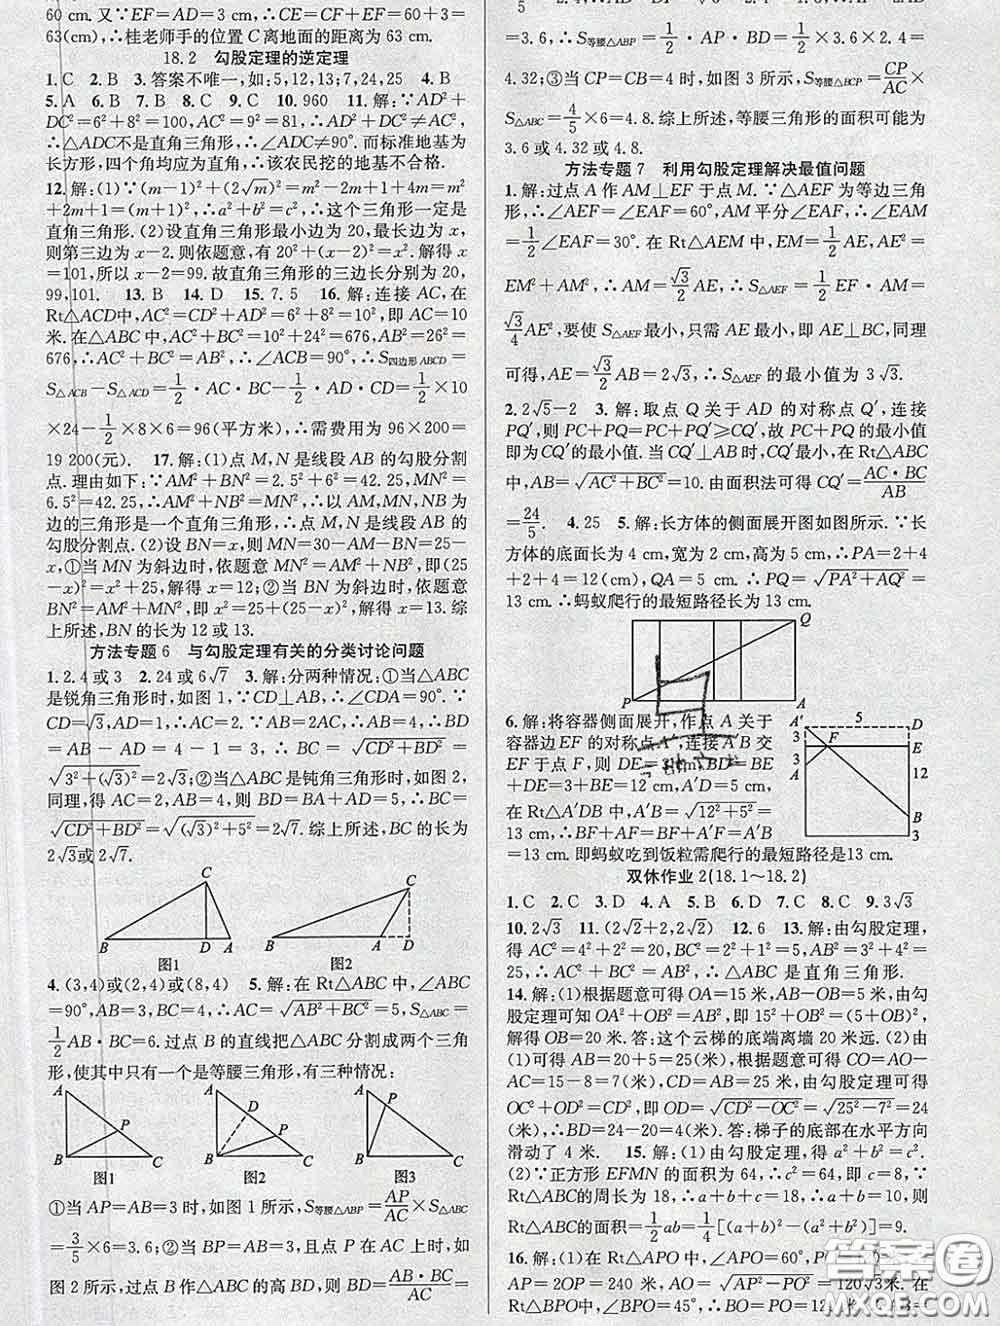 60 cm. 又∵EF=AD, ∴CF=CE+EF=60+3=
63(cm), ∴桂老师手的位置 C 离地面的距离为 63 cm.
18.2 勾股定理的逆定理
1. C 2. B 3. 答案不唯一, 如: 5,12,13; 7,24,25 4. B
5. A 6. B 7. B 8. C 9. C 10. 960 11. 解: ∵AD²+
DC²=6²+8²=100, AC²=9²=81, ∴AD²+DC²≠AC²,
∴△ADC不是直角三角形, ∴∠ADC≠90°. 而标准地基为
长方形, 四个角均应为直角, ∴该农民挖的地基不合格.
12. 解: (1)∵(m-1)²+(2√m)²=m²-2m+1+4m=m²+
2m+1=(m+1)², ∴a²+b²=c², ∴这个三角形一定是
直角三角形. (2)设直角三角形最小边为 20, 最长边为 x,
则第三边为 x-2. 则依题意, 有 20²+(x-2)²=x². 解得 x
=101, 所以 x-2=99. 故直角三角形的三边长分别为 20,
99,101. 13. B 14. D 15. 7.5 16. 解: 连接 AC, 在
Rt△ACD中, AC²=CD²+AD²=6²+8²=10², 即 AC=10
米. 在△ABC 中, AC²+BC²=10²+24²=676, AB²=26²=
676, ∴AC²+BC²=AB², ∴∠ACB=90°, ∴S四边形ABCD=
S△ACB-S△ACD=1/2·AC·BC-1/2·AD·CD=1/2×10
×24-1/2×8×6=96(平方米), ∴需费用为 96×200=
19 200(元). 17. 解: (1)点 M, N 是线段 AB 的勾股分割
点. 理由如下: ∵AM²+BN²=2.5²+6²=42.25, MN²=
6.5²=42.25, ∴AM²+NB²=MN², ∴以 AM, MN, NB 为
边的三角形是一个直角三角形, ∴点 M, N 是线段 AB 的
勾股分割点. (2)设 BN=x, 则 MN=30-AM-BN=25-
x, ①当 MN 为斜边时, 依题意 MN²=AM²+NB², 即(25
-x)²=x²+25, 解得 x=12; ②当 BN 为斜边时, 依题意
BN²=AM²+MN², 即 x²=25+(25-x)², 解得 x=13. 综
上所述, BN 的长为 12 或 13.
方法专题 6 与勾股定理有关的分类讨论问题
1. 2, 4 或 3 2. 24 或 6√7 3. 解: 分两种情况: ①当△ABC
是锐角三角形时, 如图 1, ∵CD⊥AB, ∴∠CDA=90°. ∵
CD=√3, AC=2, ∴AD=1. ∵AB=2AC, ∴AB=4, ∴
BD=AB-AD=4-1=3, ∴BC=√CD²+BD²=
√3²+(√3)²=2√3; ②当△ABC 是钝角三角形时, 如图 2,
同理, 得 AC=2, AB=4, 则 BD=BA+AD=5, ∴BC=
√CD²+BD²=√(√3)²+5²=2√7. 综上所述, BC 的长为
2√3或 2√7.
C
B D A
图1
C
B A D
图2
4. (3,4)或(2,4)或(8,4) 5. 解: 在 Rt△ABC 中, ∠ABC
=90°, AB=3, BC=4, ∴AC=√AB²+BC²=5, S△ABC=
1/2AB·BC=6. 过点 B 的直线把△ABC 分割成两个三角
形, 使其中只有一个是等腰三角形, 有三种情况:
A P B C
图1
A D P B C
图2
A P B C
图3
①当 AP=AB=3 时, 如图 1 所示, S等腰△ABP=AP/AC×S△ABC
=3/5×6=3.6; ②当 BP=AB=3, 且点 P 在 AC 上时, 如
图 2 所示, 过点 B 作△ABC 的高 BD, 则 BD=AB·BC/AC
=3.6, ∴S等腰△ABP=1/2·AP·BD=1/2×3.6×2.4=
4.32; ③当 CP=CB=4 时, 如图 3 所示, S等腰△BCP=CP/AC×
S△ABC=4/5×6=4.8. 综上所述, 等腰三角形的面积可能为
3.6 或 4.32 或 4.8.
方法专题 7 利用勾股定理解决最值问题
1. 解: 过点 A 作 AM⊥EF 于点 M. ∵△AEF 为等边三角
形, ∴∠AEF=∠EAF=60°, AM 平分∠EAF, ∴∠EAM=
1/2∠EAF=30°. 在 Rt△AEM 中, EM=1/2AE, AE²=
EM²+AM², ∴AM=√3/2AE, ∴S△AEF=1/2EF·AM=
√3/4AE², 要使 S△AEF 最小, 只需 AE 最小, 即 AE⊥BC, 同理
可得, AE=√3/2AB=2√3, ∴S△AEF 的最小值为 3√3.
2. 2√5-2 3. 解: 取点 Q 关于 AD 的对称点 Q′, 连接
PQ′, 则 PC+PQ=PC+PQ′≥CQ′, 故 PC+PQ 的最小值
即为 CQ′ 的最小值. 当 CQ′⊥AB 时, CQ′最小, 在Rt△ABC
中, AB=√AC²+BC²=10. 由面积法可得 CQ′=AC·BC/AB
=24/5. 4. 25 5. 解: 长方体的侧面展开图如图所示. ∵长
方体的底面长为 4 cm, 宽为 2 cm, 高为 5 cm, ∴PA=2+4
+2+4=12(cm), QA=5 cm, ∴PQ=√PA²+AQ²=
13 cm, ∴蚂蚁爬行的最短路径长为 13 cm.
Q
P A
6. 解: 将容器侧面展开, 作点 A 关于
容器边 EF 的对称点 A′, 连接 A′B 交
EF 于点 F, 则 DE= BD=BE
+DE=12+3-3=12 cm, A′D=5 cm,
在 Rt△A′DB 中, A′B=√12²+5²=
13 cm, ∴BF+AF=BF+A′F=A′B
=13 cm. 即蚂蚁吃到饭粒需爬行的最短路径是13 cm.
A′ 5 D
3 F 3
E
3
A 12
B
3
双休作业 2(18.1～18.2)
1. C 2. C 3. D 4. A 5. B 6. D 7. C 8. C 9. 3√3
10. 2√3 11. (2√2+2,2√2) 12. 6 13. 解: 由勾股定理,
得 AC²=4²+2²=20, BC²=2²+1²=5, AB²=3²+4²=
25, ∴AC²+BC²=AB², ∴△ABC 是直角三角形.
14. 解: (1)根据题意可得 OA=15 米, AB-OB=5 米, 由勾
股定理可知 OA²+OB²=AB², 即 15²+OB²=(5+OB)²,
解得 OB=20 米. 答: 这个云梯的底端离墙 20 米远. (2)
由(1)可得 AB=20+5=25(米), 根据题意可得 CO=AO-
AC=15-8=7(米), CD=AB=25 米, 由勾股定理可得
OC²+OD²=CD², 即 OD=√CD²-OC²=√25²-7²=24
(米), ∴BD=24-20=4(米). 答: 梯子的底部在水平方向
滑动了 4 米. 15. 解: (1)由勾股定理, 得 a²+b²=c².
(2)∵正方形 EFMN 的面积为 64, ∴c²=64, 即 c=8. ∵
Rt△ABC的周长为 18, ∴a+b+c=18, ∴a+b=10, 则
Rt△ABC的面积=1/2ab=1/4[(a+b)²-(a²+b²)]=9.
16. 解: (1)在 Rt△APO 中, ∠APO=60°,
AP=2OP=240 米, AO=√AP²-PO²=120√3米. 在
Rt△BPO中, ∠BPO=45°, ∴BO=PO=120 米, ∴AB=
答案圈